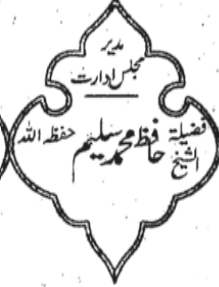 مدیر
مجلس ادارت
فضیلة الشیخ حافظ محمد سلیم حفظه الله